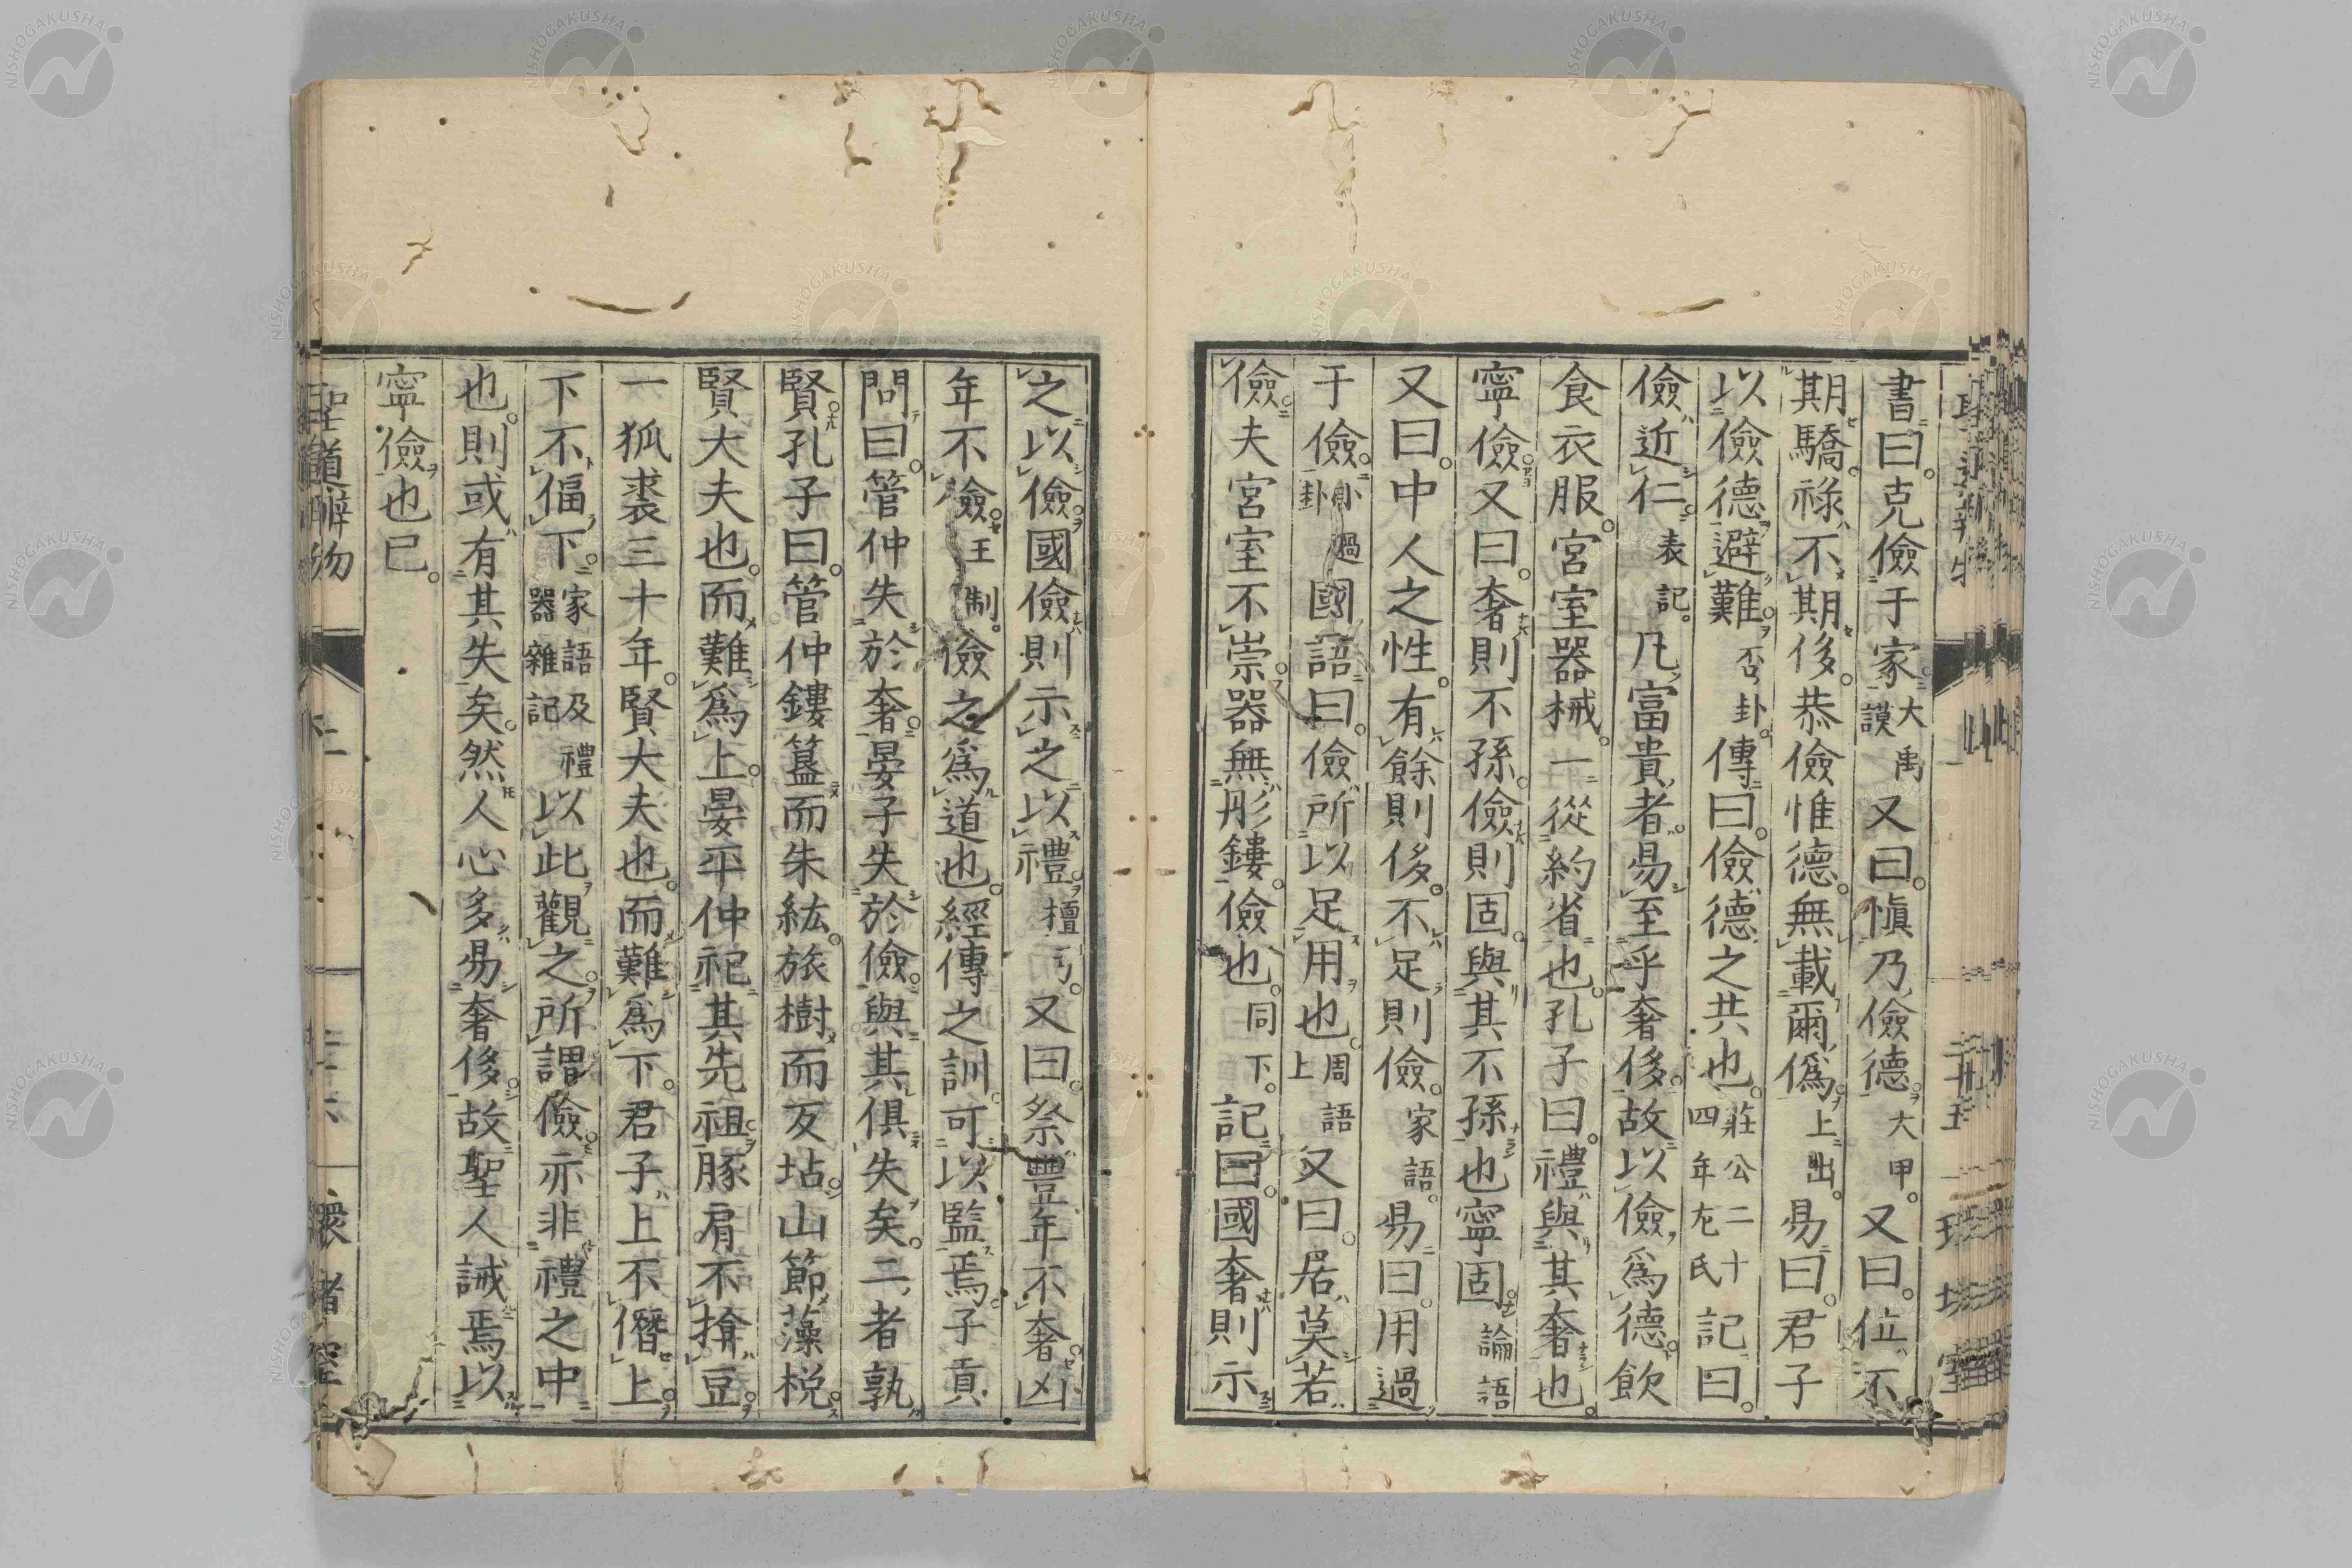 書曰。克儉于家。大禹謨又曰。愼乃儉德。大甲。又曰。位不
期驕。祿不期侈。恭儉惟德。無載爾僞。上出。易曰。君子
以儉德避難。否卦。傳曰。儉德之共也。莊公二十四年左氏記曰。
儉近仁。表記。凡富貴者。易至乎奢侈。故以儉爲德。飮
食衣服。宮室器械。一從約省也。孔子曰。禮與其奢也。
寧儉。又曰。奢則不孫。儉則固。與其不孫也寧固。論語
又曰。中人之性。有餘則侈。不足則儉。家語。易曰。用過
于儉。小過卦國語曰。儉所以足用也。周語上又曰。居莫若
儉。夫宮室不崇。器無彤鏤。儉也。同下。記曰。國奢則示
之以儉。國儉則示之以禮。檀弓。又曰。祭豐年不奢。凶
年不儉。王制。儉之爲道也。經傳之訓。可以監焉。子貢
問曰。管仲失於奢。晏子失於儉。與其俱失矣。二者孰
賢。孔子曰。管仲鏤簋而朱紘。旅樹而反坫。山節藻梲。
賢大夫也。而難爲上。晏平仲祀其先祖。豚肩不揜豆。
一狐裘三十年。賢大夫也。而難爲下。君子上不僭上。
下不偪下。家語及禮器雜記以此觀之。所謂儉。亦非禮之中
也。則或有其失矣。然人心多易奢侈。故聖人誡焉。以
寧儉也已。
聖道辨物
上
環堵室
NISHOGAKUSHA